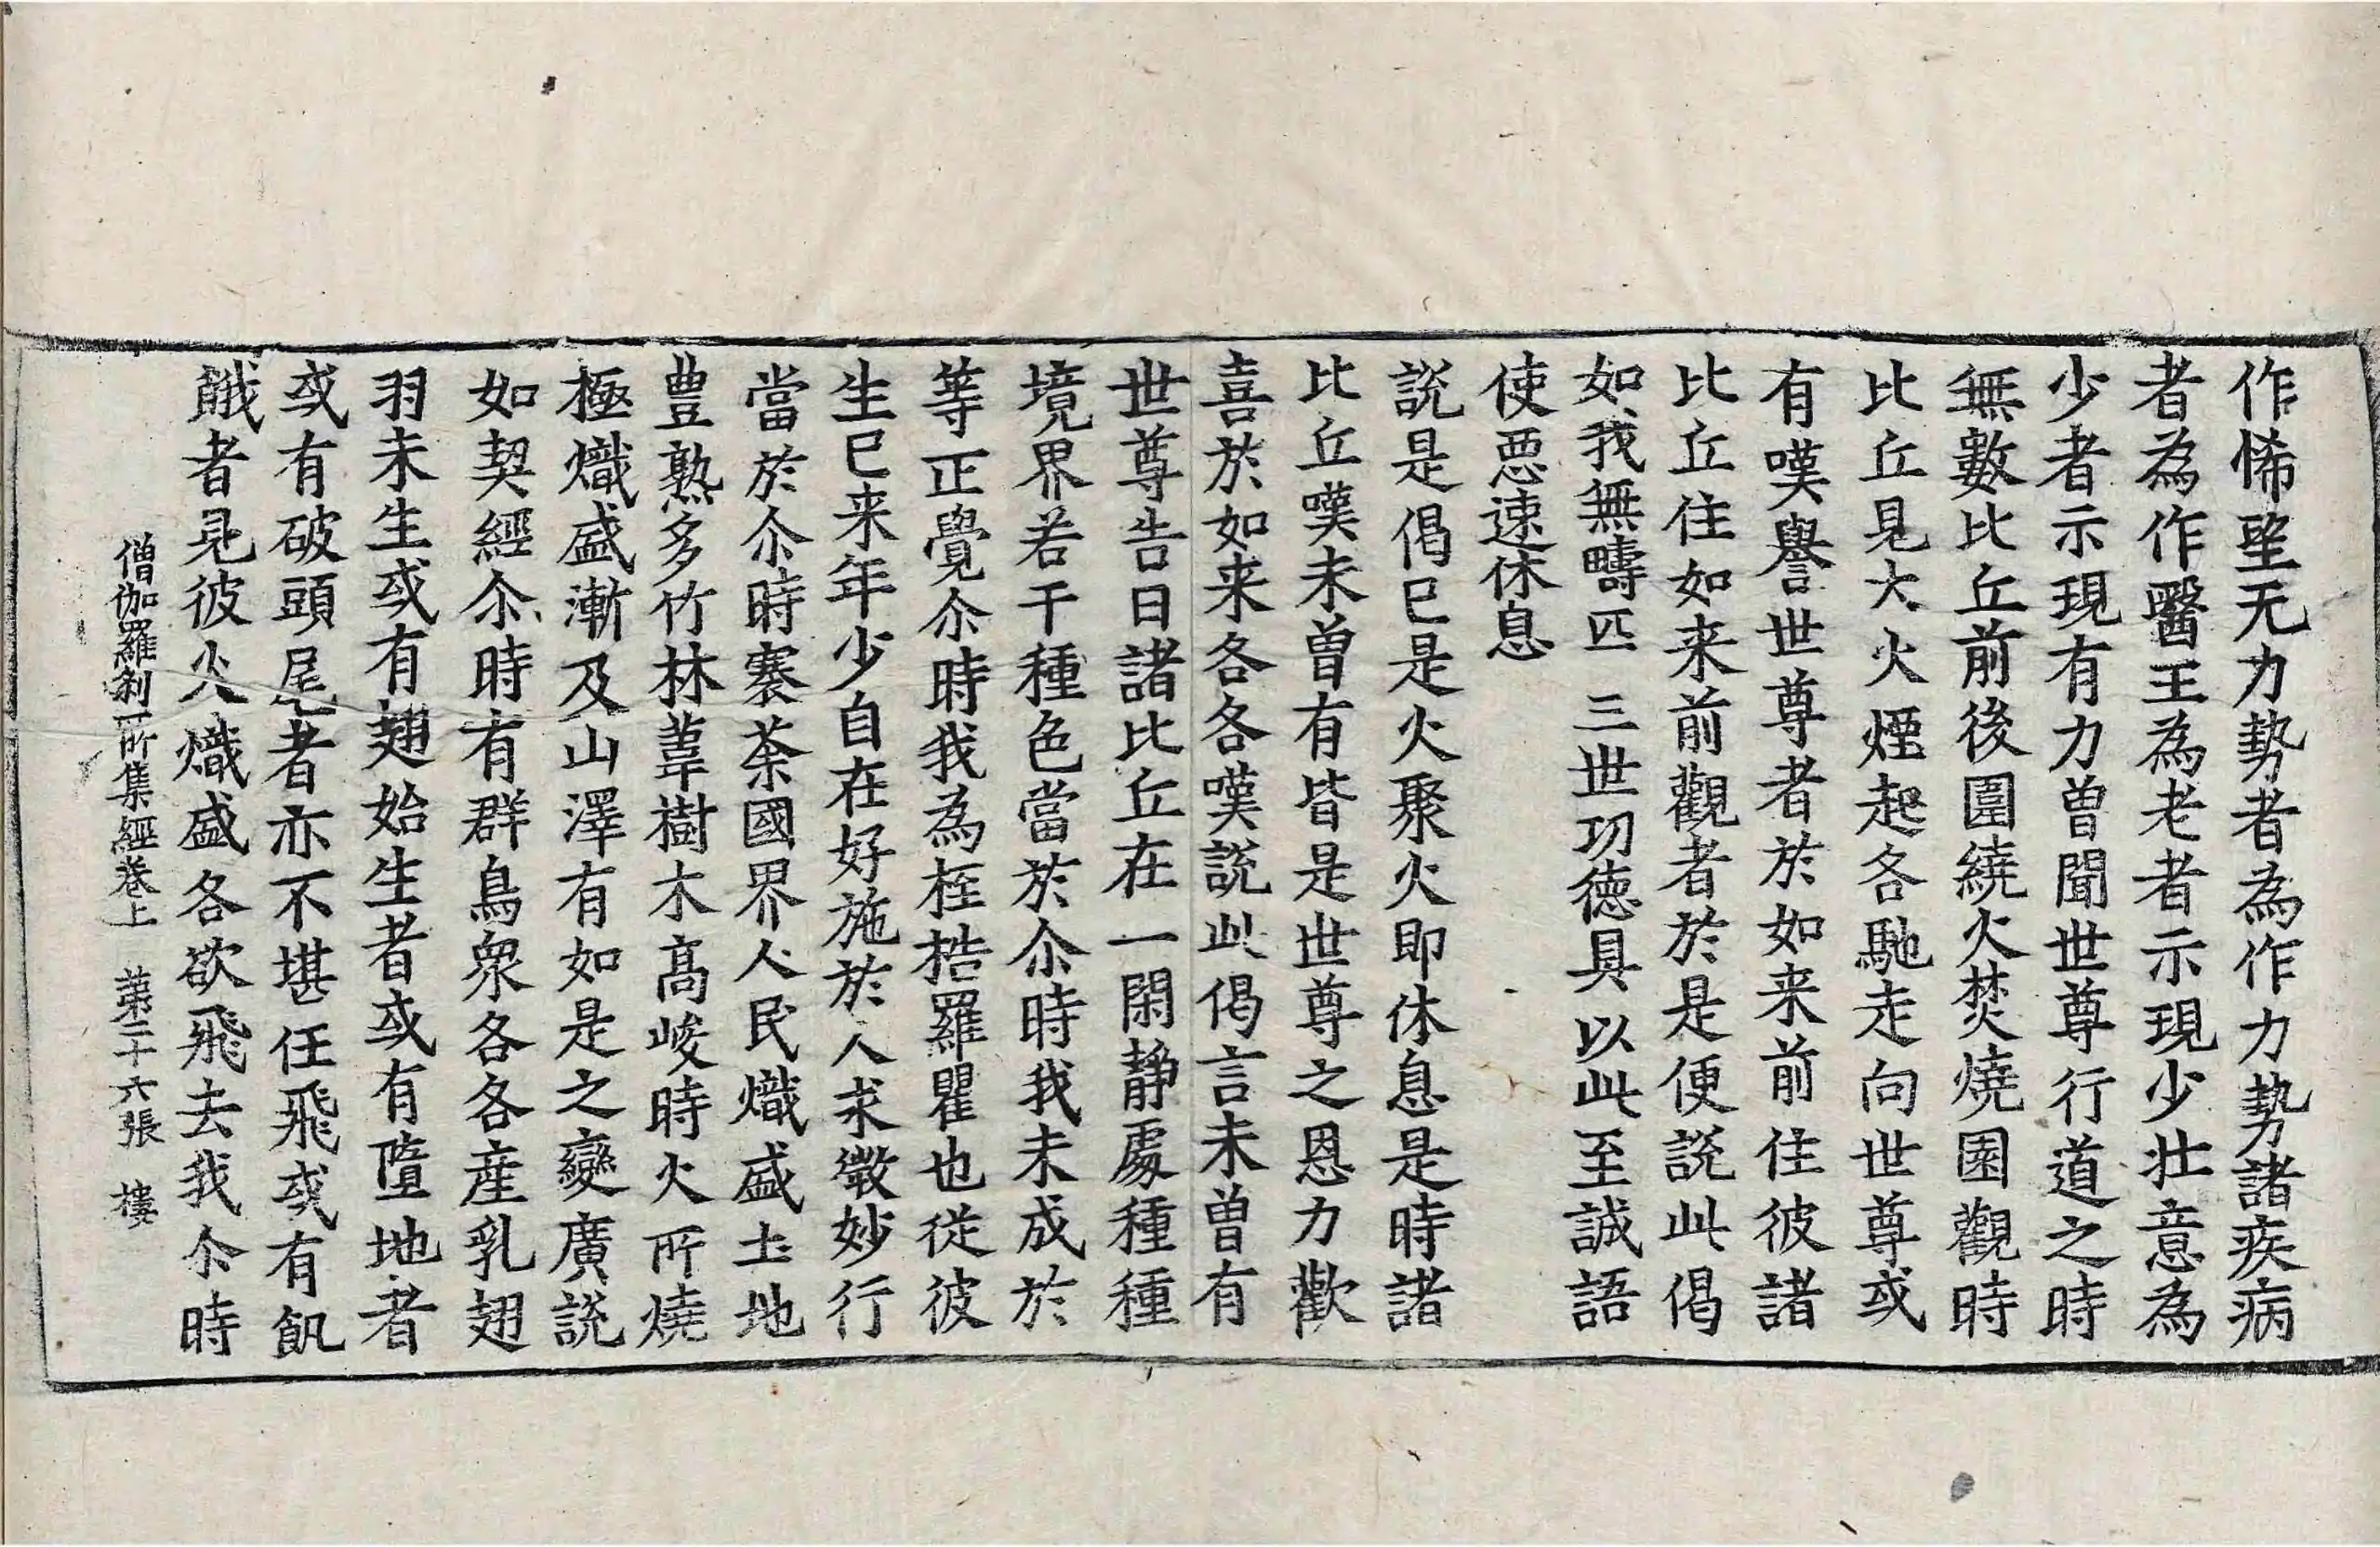 作悕望无力勢者為作力勢諸疾病
者為作醫王為老者示現少壯意為
少者示現有力曽聞世尊行道之時
無數比丘前後圍繞火焚燒園觀時
比丘見大火煙起各馳走向世尊或
有嘆譽世尊者於如来前住彼諸
比丘住如来前觀者於是便說此偈
如我無疇匹 三世功德具 以此至誠語
使惡速休息
說是偈已是火聚火即休息是時諸
比丘嘆未曽有皆是世尊之恩力歡
喜於如来各各嘆說此偈言未曽有
世尊告曰諸比丘在一閑静處種種
境界若干種色當於尒時我未成於
等正覺尒時我為桎梏羅瞿也從彼
生已来年少自在好施於人求微妙行
當於尒時寨荼國界人民熾盛土地
豊熟多竹林葦樹木高峻時火所燒
極熾盛漸及山澤有如是之變廣說
如契經尒時有群鳥衆各各産乳翅
羽未生或有翅始生者或有墮地者
或有破頭尾者亦不堪任飛或有飢
餓者見彼火熾盛各欲飛去我尒時
僧伽羅刹所集經卷上 第二十六張 樓